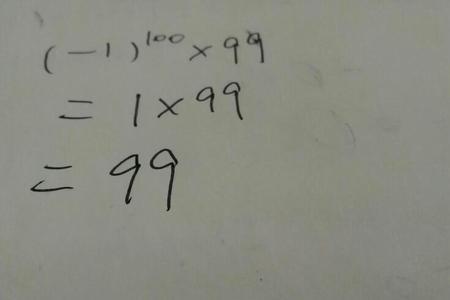 (-1)¹⁰⁰ × 99
= 1 × 99
= 99